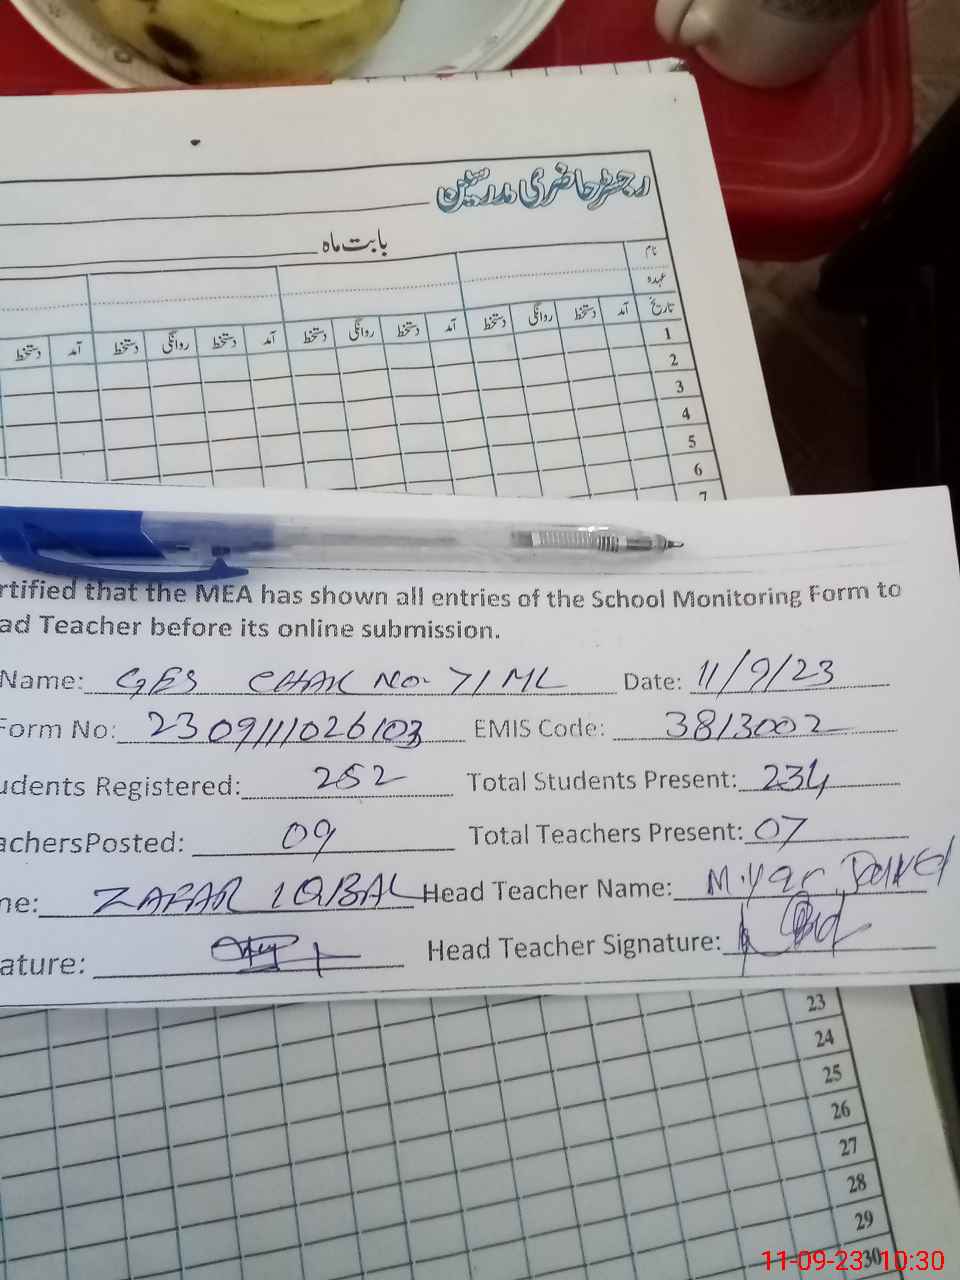 رجسٹر حاضری مدرسین
بابت ماہ
نام
عہدہ
تاریخ آمد دستخط روانگی دستخط آمد دستخط روانگی دستخط آمد دستخط روانگی دستخط آمد دستخط
1
2
3
4
5
6
7
rtified that the MEA has shown all entries of the School Monitoring Form to
ad Teacher before its online submission.
Name: GES CHAK NO. 71 ML Date: 11/9/23
Form No: 2309111026103 EMIS Code: 3813002
udents Registered: 252 Total Students Present: 234
achersPosted: 09 Total Teachers Present: 07
ne: ZAFAR IQBAL Head Teacher Name: M.
ature: Head Teacher Signature:
23
24
25
26
27
28
29
30
11-09-23 10:30